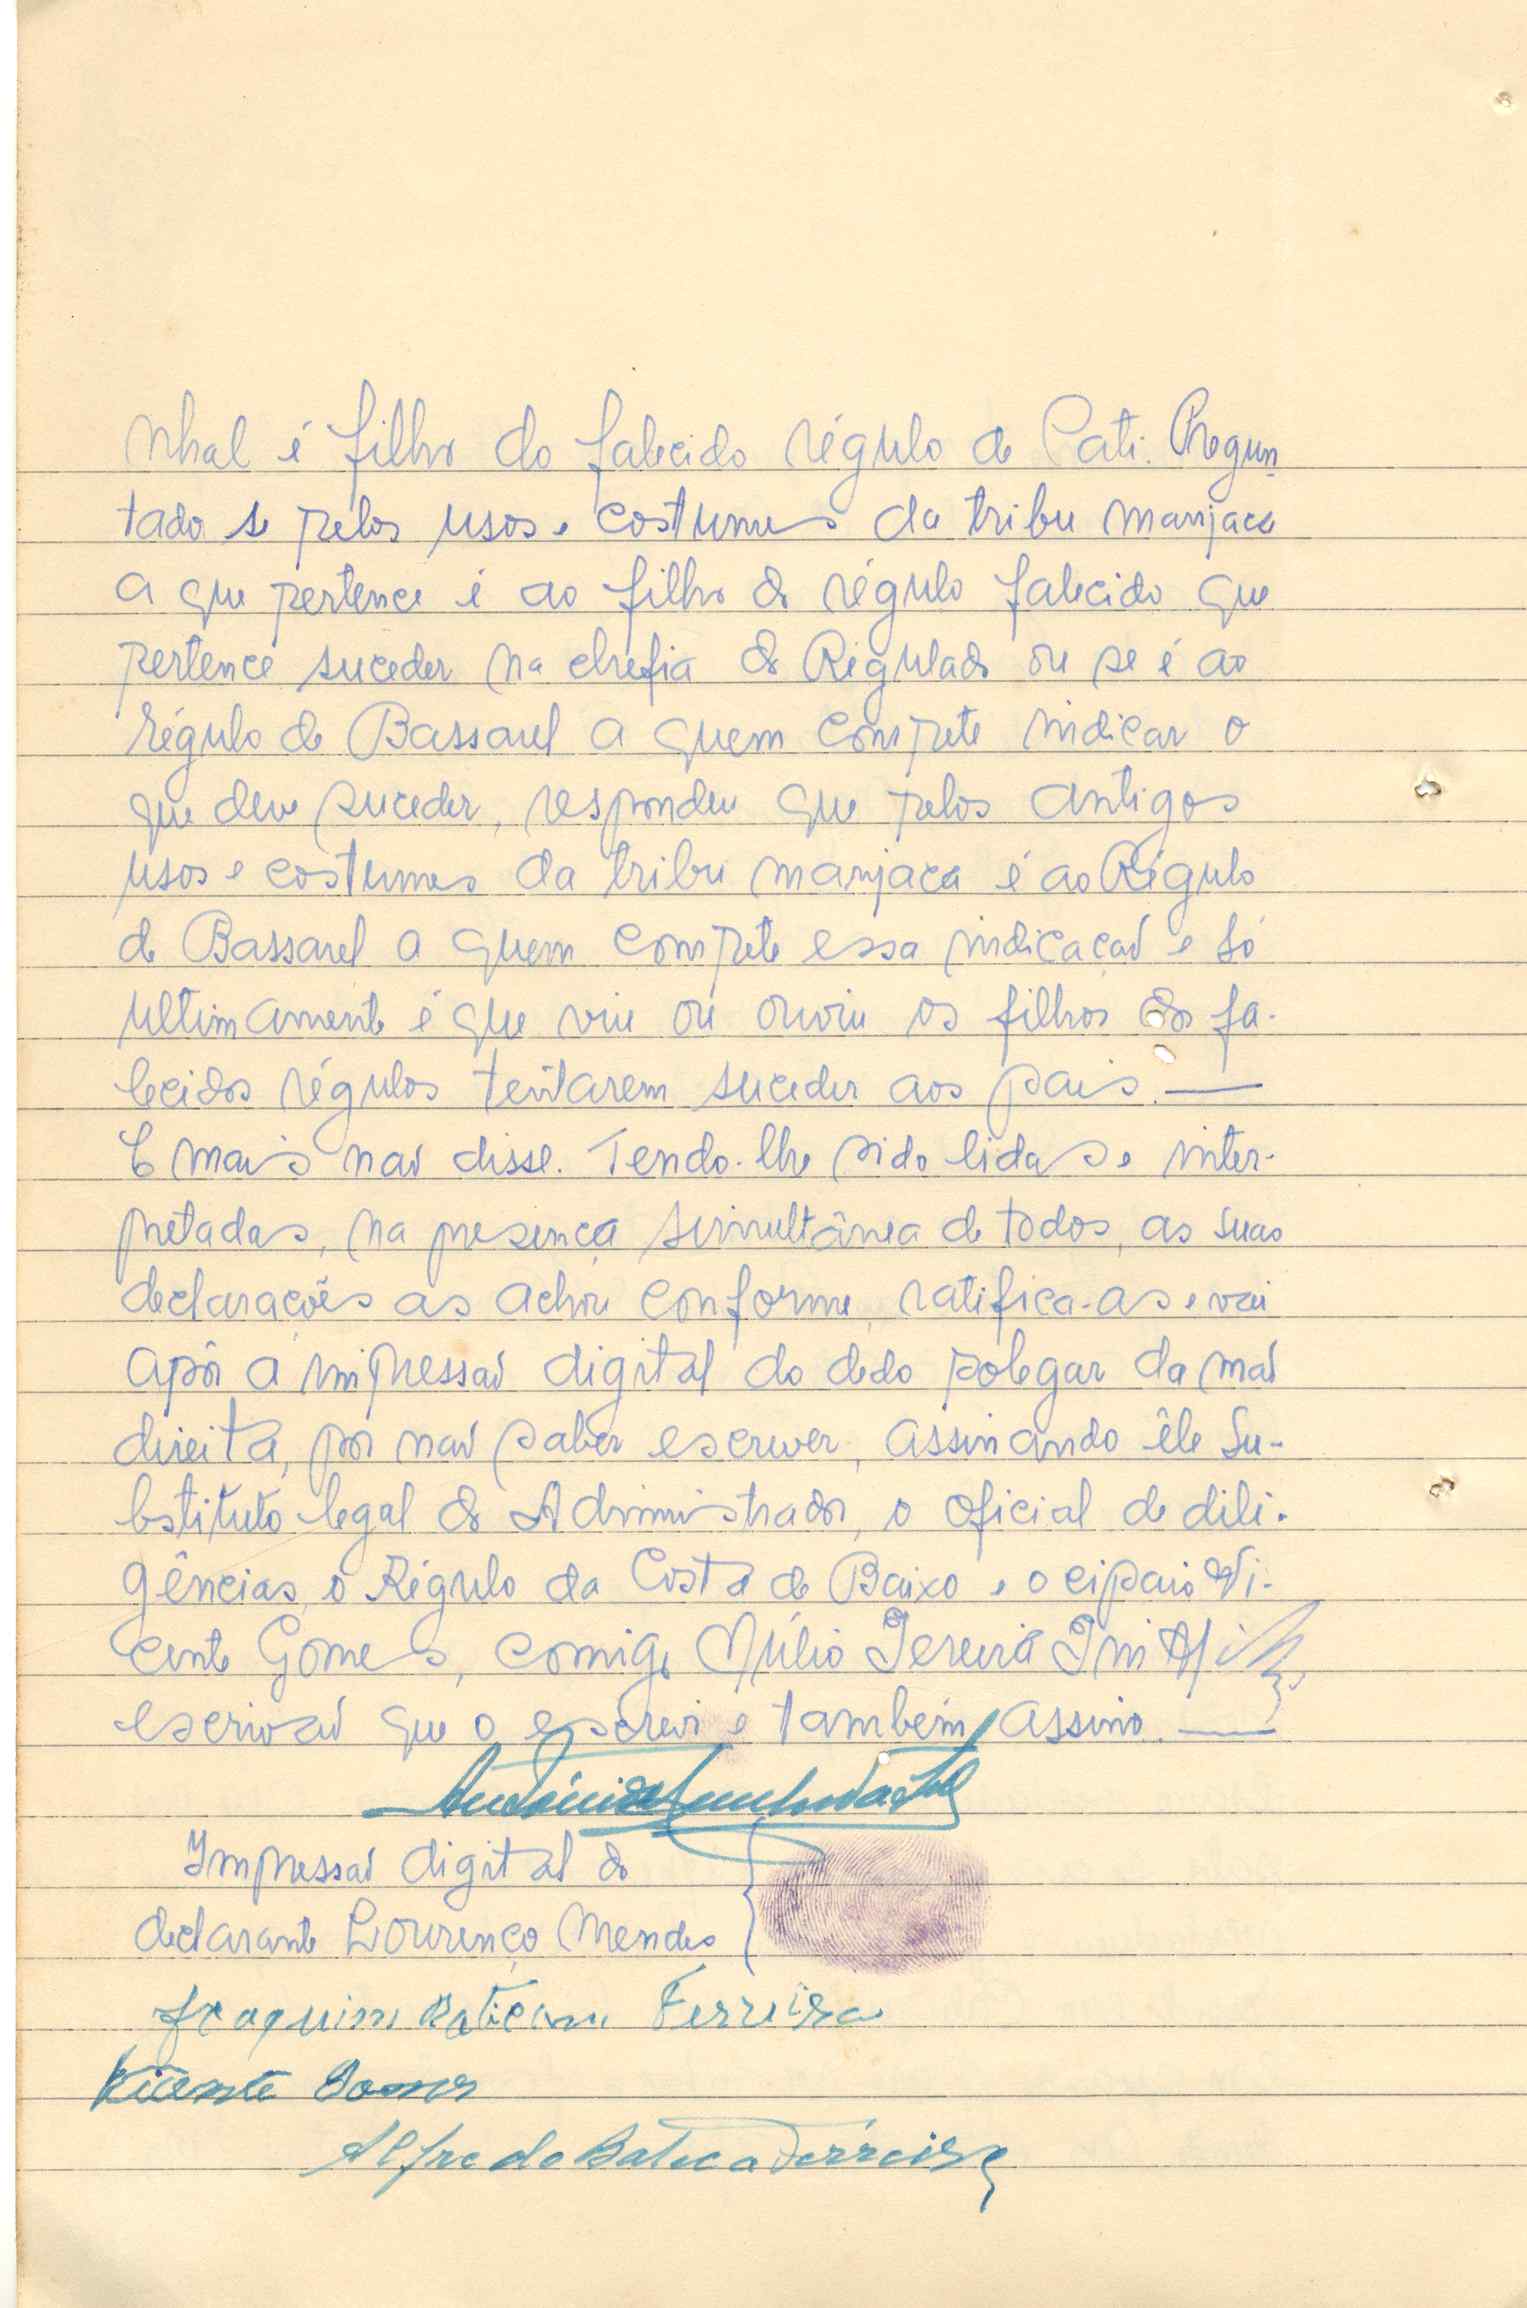 nhal é filho do falecido régulo de Pati. Pregun
tado se pelos usos e costumes da tribu manjaca
a que pertence é ao filho do régulo falecido que
pertence suceder na chefia do Regulado ou se é ao
régulo de Bassarel a quem compete indicar o
que deve suceder, respondeu que pelos antigos
usos e costumes da tribu manjaca é ao Régulo
de Bassarel a quem compete essa indicação e só
ultimamente é que viu ou ouviu os filhos dos fa-
lecidos régulos tentarem suceder aos pais. —
E mais não disse. Tendo-lhe sido lidas e inter-
pretadas, na presença simultânea de todos, as suas
declarações as achou conforme, ratifica-as e vai
apôr a impressão digital do dedo polegar da mão
direita, por não saber escrever, assinando êle Su-
bstituto legal do Administrador, o oficial de dili-
gências, o Régulo da Costa de Baixo e o cipaio Vi-
cente Gomes, comigo Júlio Pereira
escrivão que o escrevi e também assino. —
Impressão digital do
declarante Lourenço Mendes
Joaquim Batican Ferreira
Vicente Gomes
Alfredo Bateca Ferreira